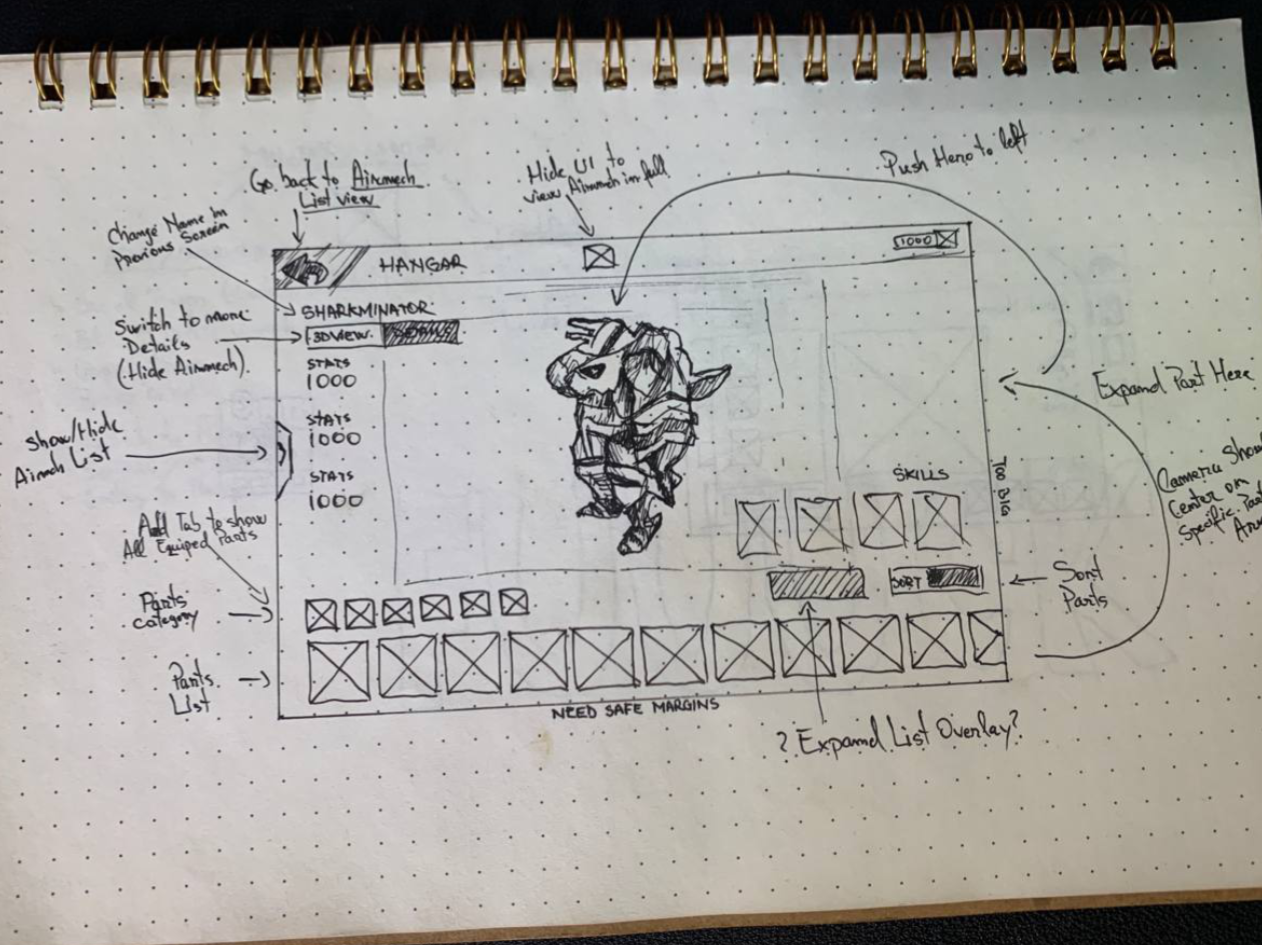 Go back to Airmech
List view
Hide UI to
view Airmech in full
Push Hero to left
Change Name in
Previous Screen
HANGAR
1000
SHARKMINATOR
Switch to more
Details
(Hide Airmech).
3D VIEW
STATS
1000
STATS
1000
STATS
1000
Show/Hide
Airmech List
Expand Part Here
SKILLS
TOO BIG
Camera Shou
Center on
Specific Part
Add Tab to show
All Equiped Parts
Parts
Category
SORT
Sort
Parts
Parts
List
NEED SAFE MARGINS
? Expand List Overlay?